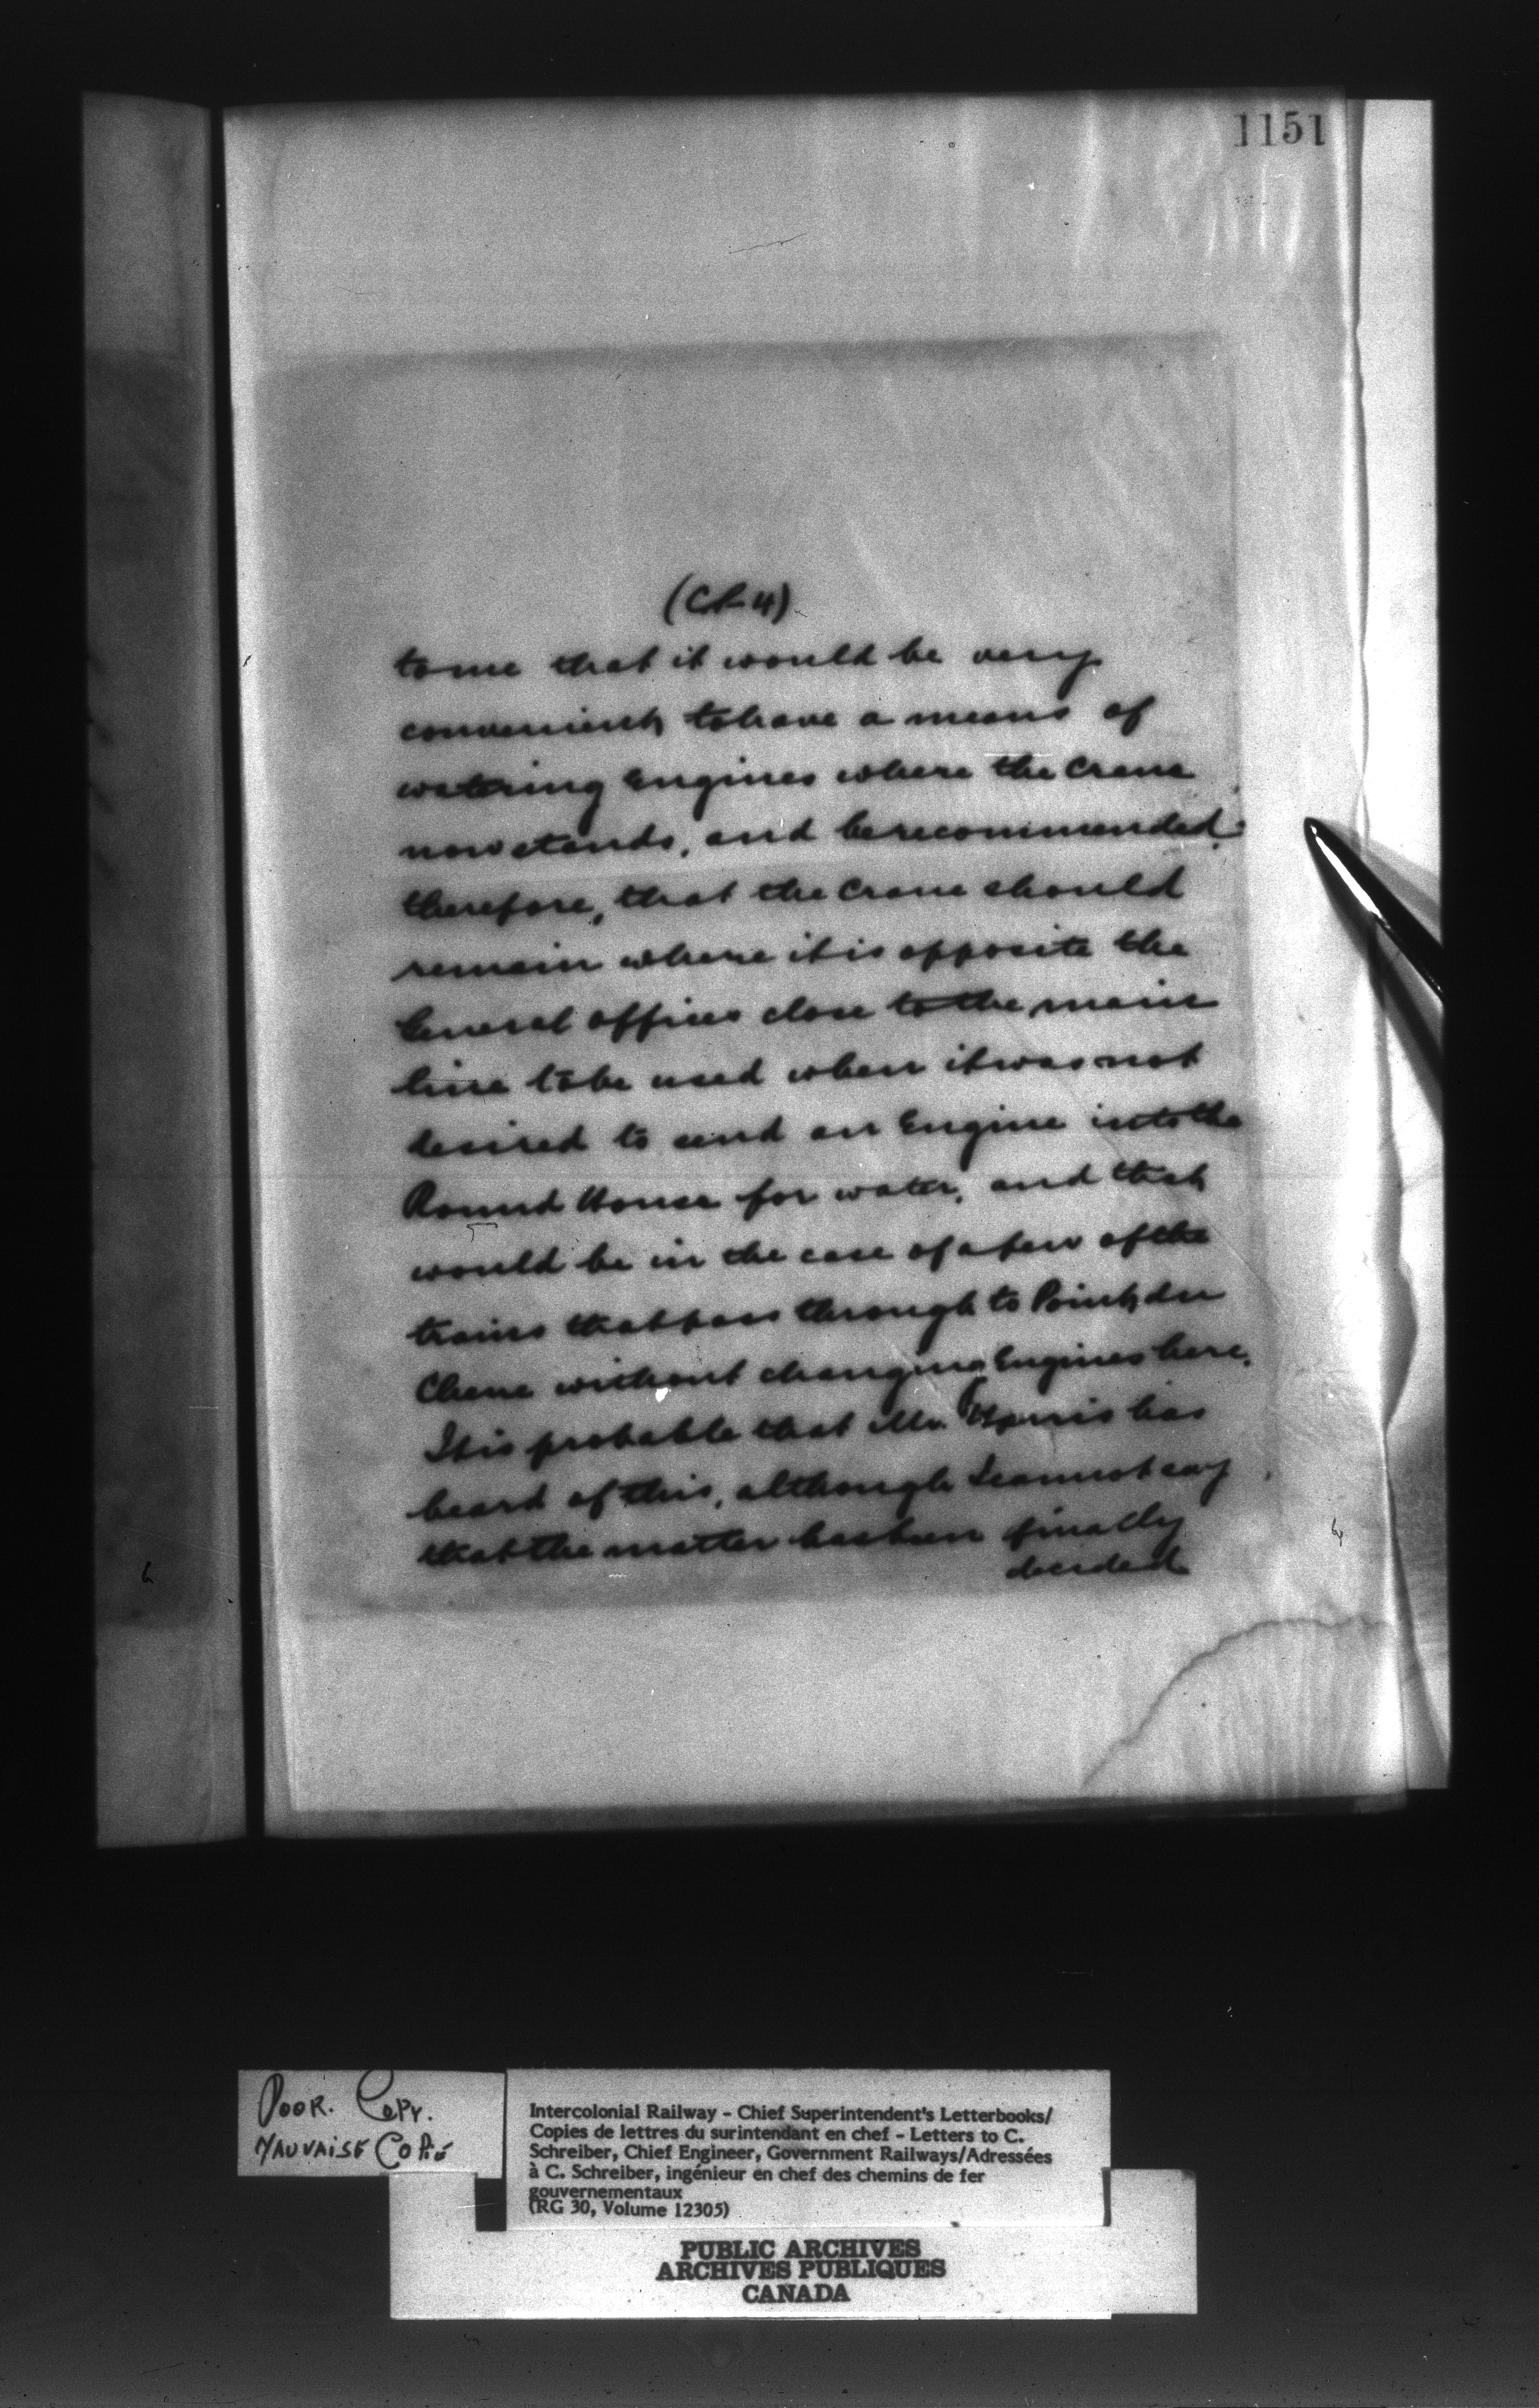 1151
(CS 4)
to me that it would be very
convenient to have a means of
watering Engines where the Crane
now stands, and he recommended,
therefore, that the Crane should
remain where it is opposite the
General offices close to the main
line to be used when it was not
desired to send an Engine into the
Round House for water, and that
would be in the case of a few of the
trains that pass through to Point du
Chene without changing Engines here.
It is probable that Mr. Harris has
heard of this, although I cannot say
that the matter has been finally
decided
POOR. COPY.
MAUVAISE COPIE
Intercolonial Railway - Chief Superintendent's Letterbooks/
Copies de lettres du surintendant en chef - Letters to C.
Schreiber, Chief Engineer, Government Railways/Adressées
à C. Schreiber, ingénieur en chef des chemins de fer
gouvernementaux
(RG 30, Volume 12305)
PUBLIC ARCHIVES
ARCHIVES PUBLIQUES
CANADA